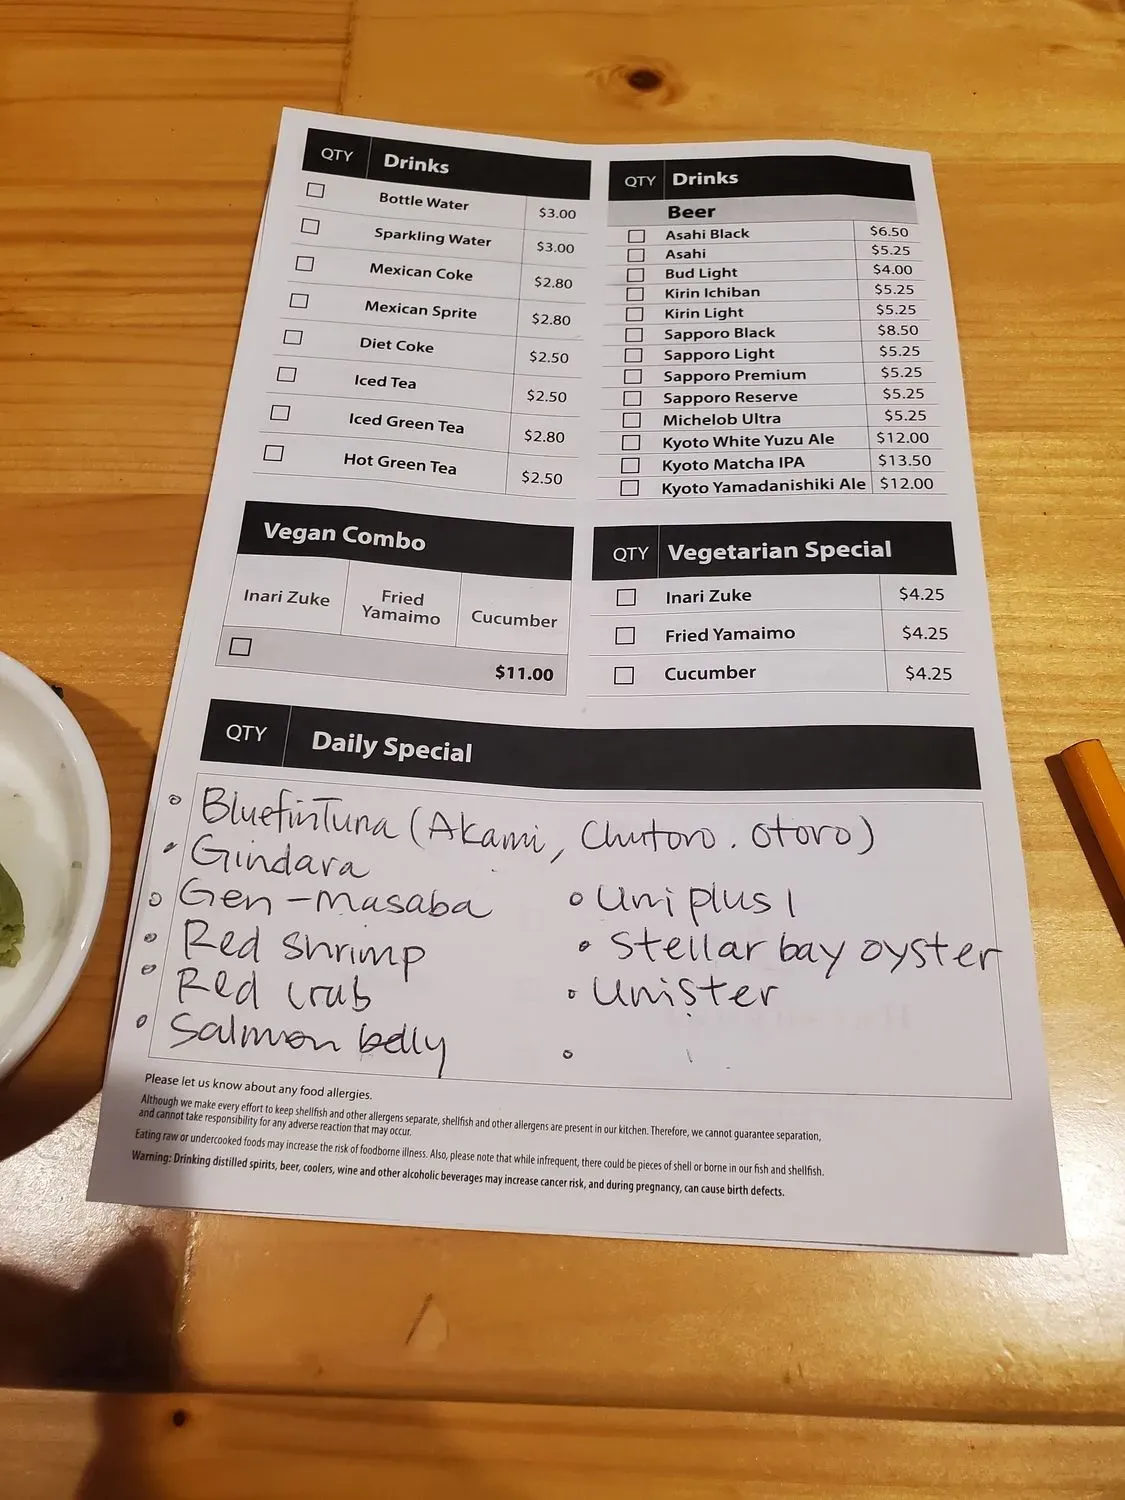 QTY Drinks
Bottle Water $3.00
Sparkling Water $3.00
Mexican Coke $2.80
Mexican Sprite $2.80
Diet Coke $2.50
Iced Tea $2.50
Iced Green Tea $2.80
Hot Green Tea $2.50
QTY Drinks
Beer
Asahi Black $6.50
Asahi $5.25
Bud Light $4.00
Kirin Ichiban $5.25
Kirin Light $5.25
Sapporo Black $8.50
Sapporo Light $5.25
Sapporo Premium $5.25
Sapporo Reserve $5.25
Michelob Ultra $5.25
Kyoto White Yuzu Ale $12.00
Kyoto Matcha IPA $13.50
Kyoto Yamadanishiki Ale $12.00
Vegan Combo
Inari Zuke Fried Yamaimo Cucumber
$11.00
QTY Vegetarian Special
Inari Zuke $4.25
Fried Yamaimo $4.25
Cucumber $4.25
QTY Daily Special
BluefinTuna (Akami, Chutoro. Otoro)
Gindara
Gen-masaba
Red shrimp
Red crab
Salmon belly
Uni plus 1
Stellar bay oyster
Unister
Please let us know about any food allergies.
Although we make every effort to keep shellfish and other allergens separate, shellfish and other allergens are present in our kitchen. Therefore, we cannot guarantee separation,
and cannot take responsibility for any adverse reaction that may occur.
Eating raw or undercooked foods may increase the risk of foodborne illness. Also, please note that while infrequent, there could be pieces of shell or borne in our fish and shellfish.
Warning: Drinking distilled spirits, beer, coolers, wine and other alcoholic beverages may increase cancer risk, and during pregnancy, can cause birth defects.